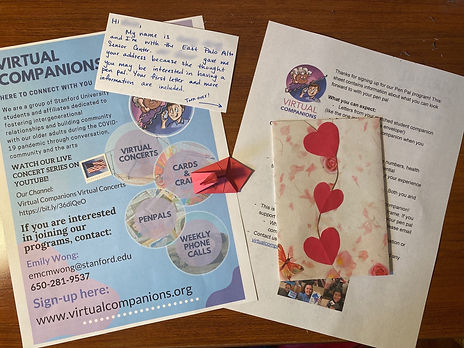 Hi
My name is
and I'm with the East Palo Alto
Senior Center. gave me
your address because she thought
you may be interested in having a
pen pal! Your first letter and more
information are included.
Turn over!
VIRTUAL
COMPANIONS
HERE TO CONNECT WITH YOU
We are a group of Stanford University
students and affiliates dedicated to
fostering intergenerational
relationships and building community
with our older adults during the COVID-
19 pandemic through conversation,
community and the arts
WATCH OUR LIVE
CONCERT SERIES ON
YOUTUBE!
Our Channel:
Virtual Companions Virtual Concerts
https://bit.ly/36diQeO
If you are interested
in joining our
programs, contact:
Emily Wong:
emcmwong@stanford.edu
650-281-9537
Sign-up here:
www.virtualcompanions.org
VIRTUAL
CONCERTS
CARDS &
PENPALS
WEEKLY
PHONE
CALLS
Thanks for signing up for our Pen Pal program! This
sheet contains information about what you can look
forward to with your pen pal!
VIRTUAL
COMPANIONS
What you can expect:
Letters from your matched student companion
(like the one
envelope)
companion when you
numbers, health
ential
your experience
Both you and
student
name. If you
your pen pal
please email
This
support
Contact us